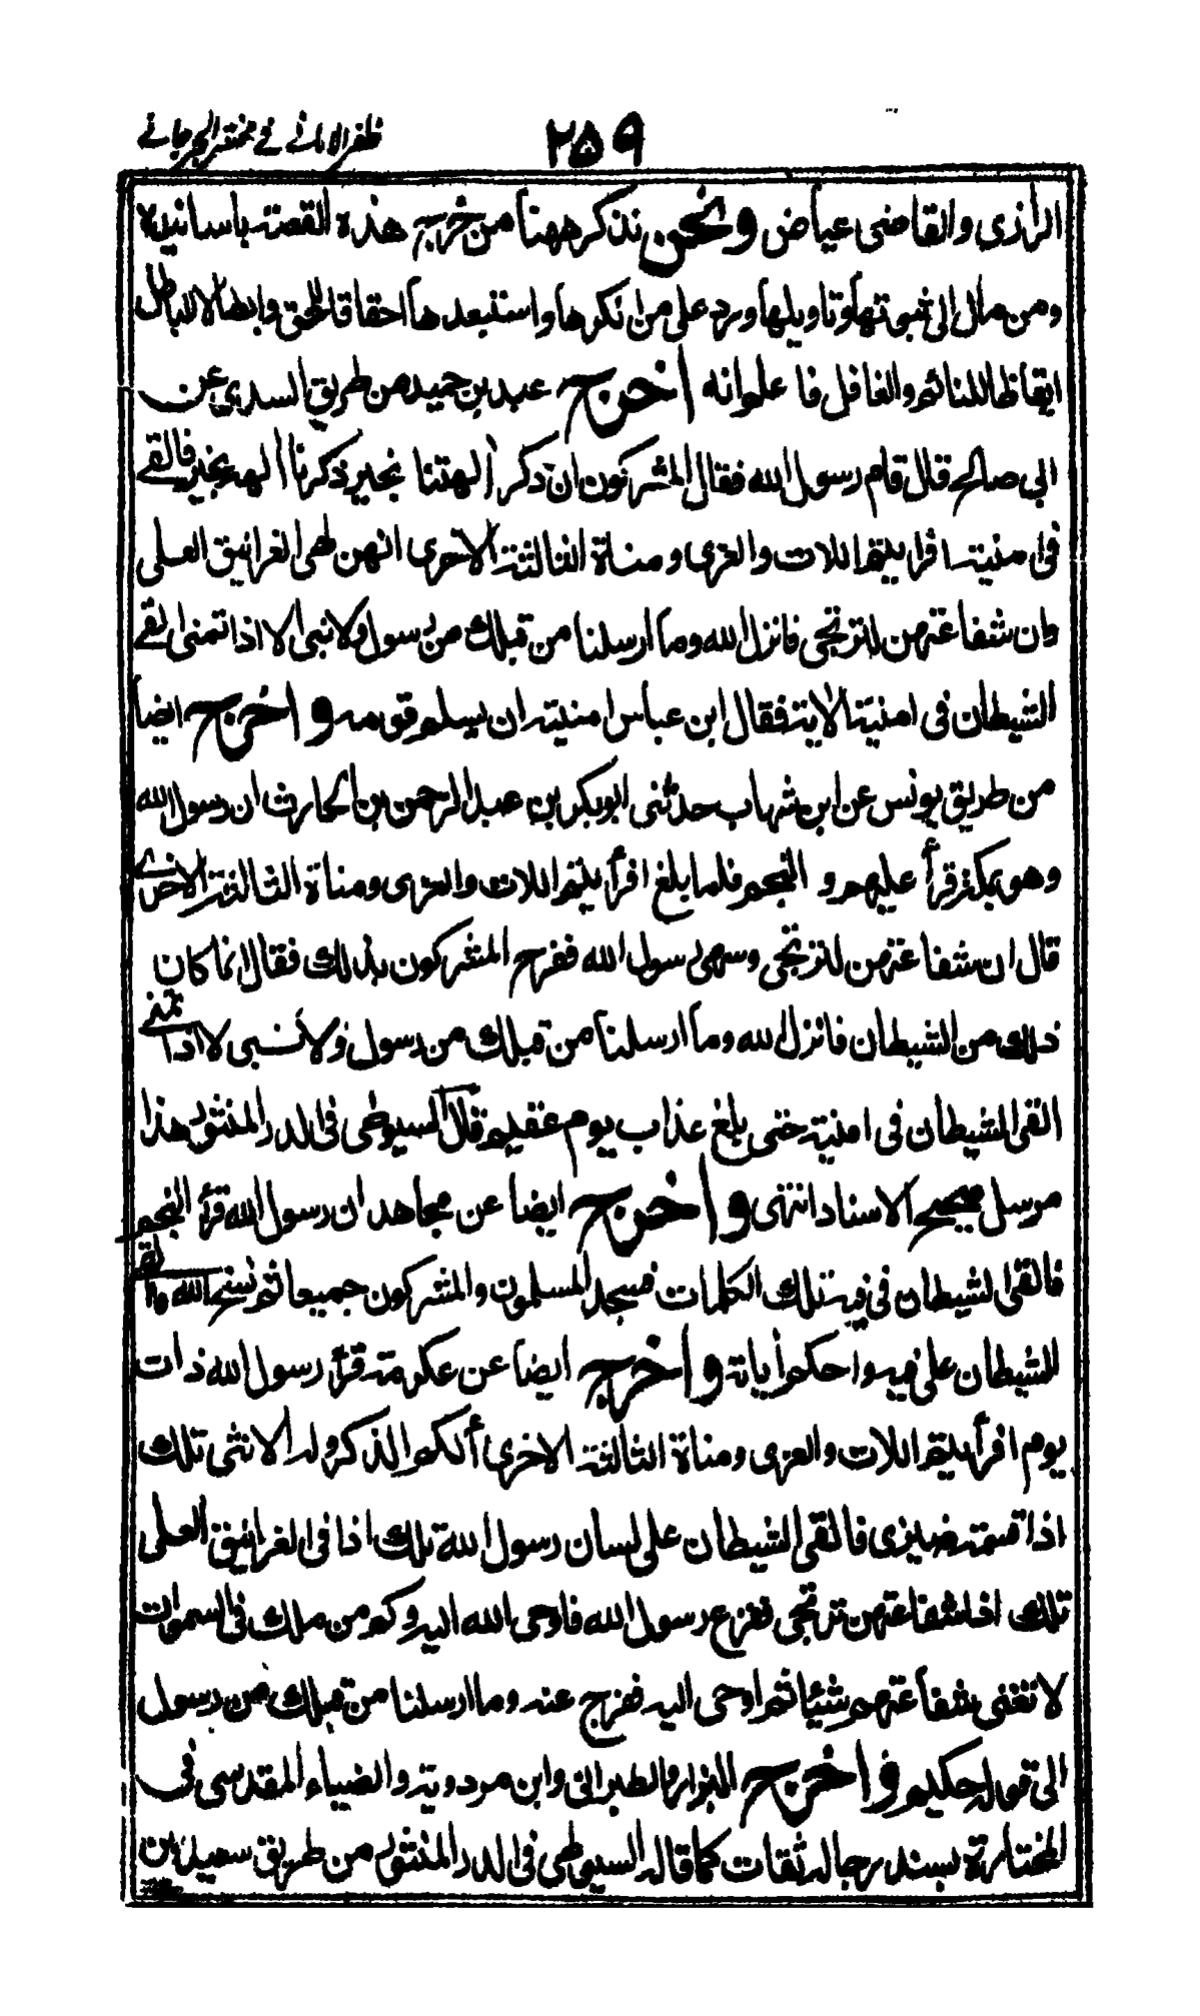 ظفر الامانے فے مختصر الجرجانے
٢٥٩
الرازی والقاضی عیاض ونحن نذکر ههنا من خرج هذه القصة باسانید
ومن مال الی ثبوتها وتاویلها ورد علی من انکرها واستبعدها احقاقا للحق وابطالا للباطل
ایقاظا للنائم والغافل فاعلم انه اخرج عبد بن حمید من طریق السدی عن
ابی صالح قال قام رسول الله فقال المشرکون ان ذکر الهتنا بخیر ذکرنا الهه بخیر فالقے
فی امنیته افرایتم اللات والعزی ومناة الثالثة الاخری انهن لهی الغرانیق العلی
وان شفاعتهن لترتجی فانزل الله وما ارسلنا من قبلك من رسول ولا نبی الا اذا تمنی القے
الشیطان فی امنیته الایة فقال ابن عباس امنیته ان یسلم قومه واخرج ایضا
من طریق یونس عن ابن شهاب حدثنی ابوبکر بن عبد الرحمن بن الحارث ان رسول الله
وهو بمکة قرأ علیهم والنجم فلما بلغ افرأیتم اللات والعزی ومناة الثالثة الاخرے
قال ان شفاعتهن لترتجی وسهی رسول الله ففرح المشرکون بذلك فقال انما کان
ذلك من الشیطان فانزل الله وما ارسلنا من قبلك من رسول ولا نبی الا اذا تمنے
القی الشیطان فی امنیته حتی بلغ عذاب یوم عقیم قال السیوطی فی الدر المنثور هذا
مرسل صحیح الاسناد انتهی واخرج ایضا عن مجاهد ان رسول الله قرأ النجم
فالقی الشیطان فی فیه تلك الکلمات فسجد المسلمون والمشرکون جمیعا ثم نسخ الله ما القے
الشیطان علی فیه واحکم أیاته واخرج ایضا عن عکرمة قرأ رسول الله ذات
یوم افرأیتم اللات والعزی ومناة الثالثة الاخری ألکم الذکر وله الانثی تلك
اذا قسمة ضیزی فالقی الشیطان علی لسان رسول الله تلك اذا فی الغرانیق العلی
تلك اذا شفاعتهن ترتجی ففزع رسول الله فاوحی الله الیه وکم من ملك فی السموات
لا تغنی شفاعتهم شیئا ثم اوحی الیه ففرج عنه وما ارسلنا من قبلك من رسول
الی قوله حکیم واخرج البزار والطبرانی وابن مردویه والضیاء المقدسی فی
المختارة بسند رجاله ثقات کما قاله السیوطی فی الدر المنثور من طریق سعید بن